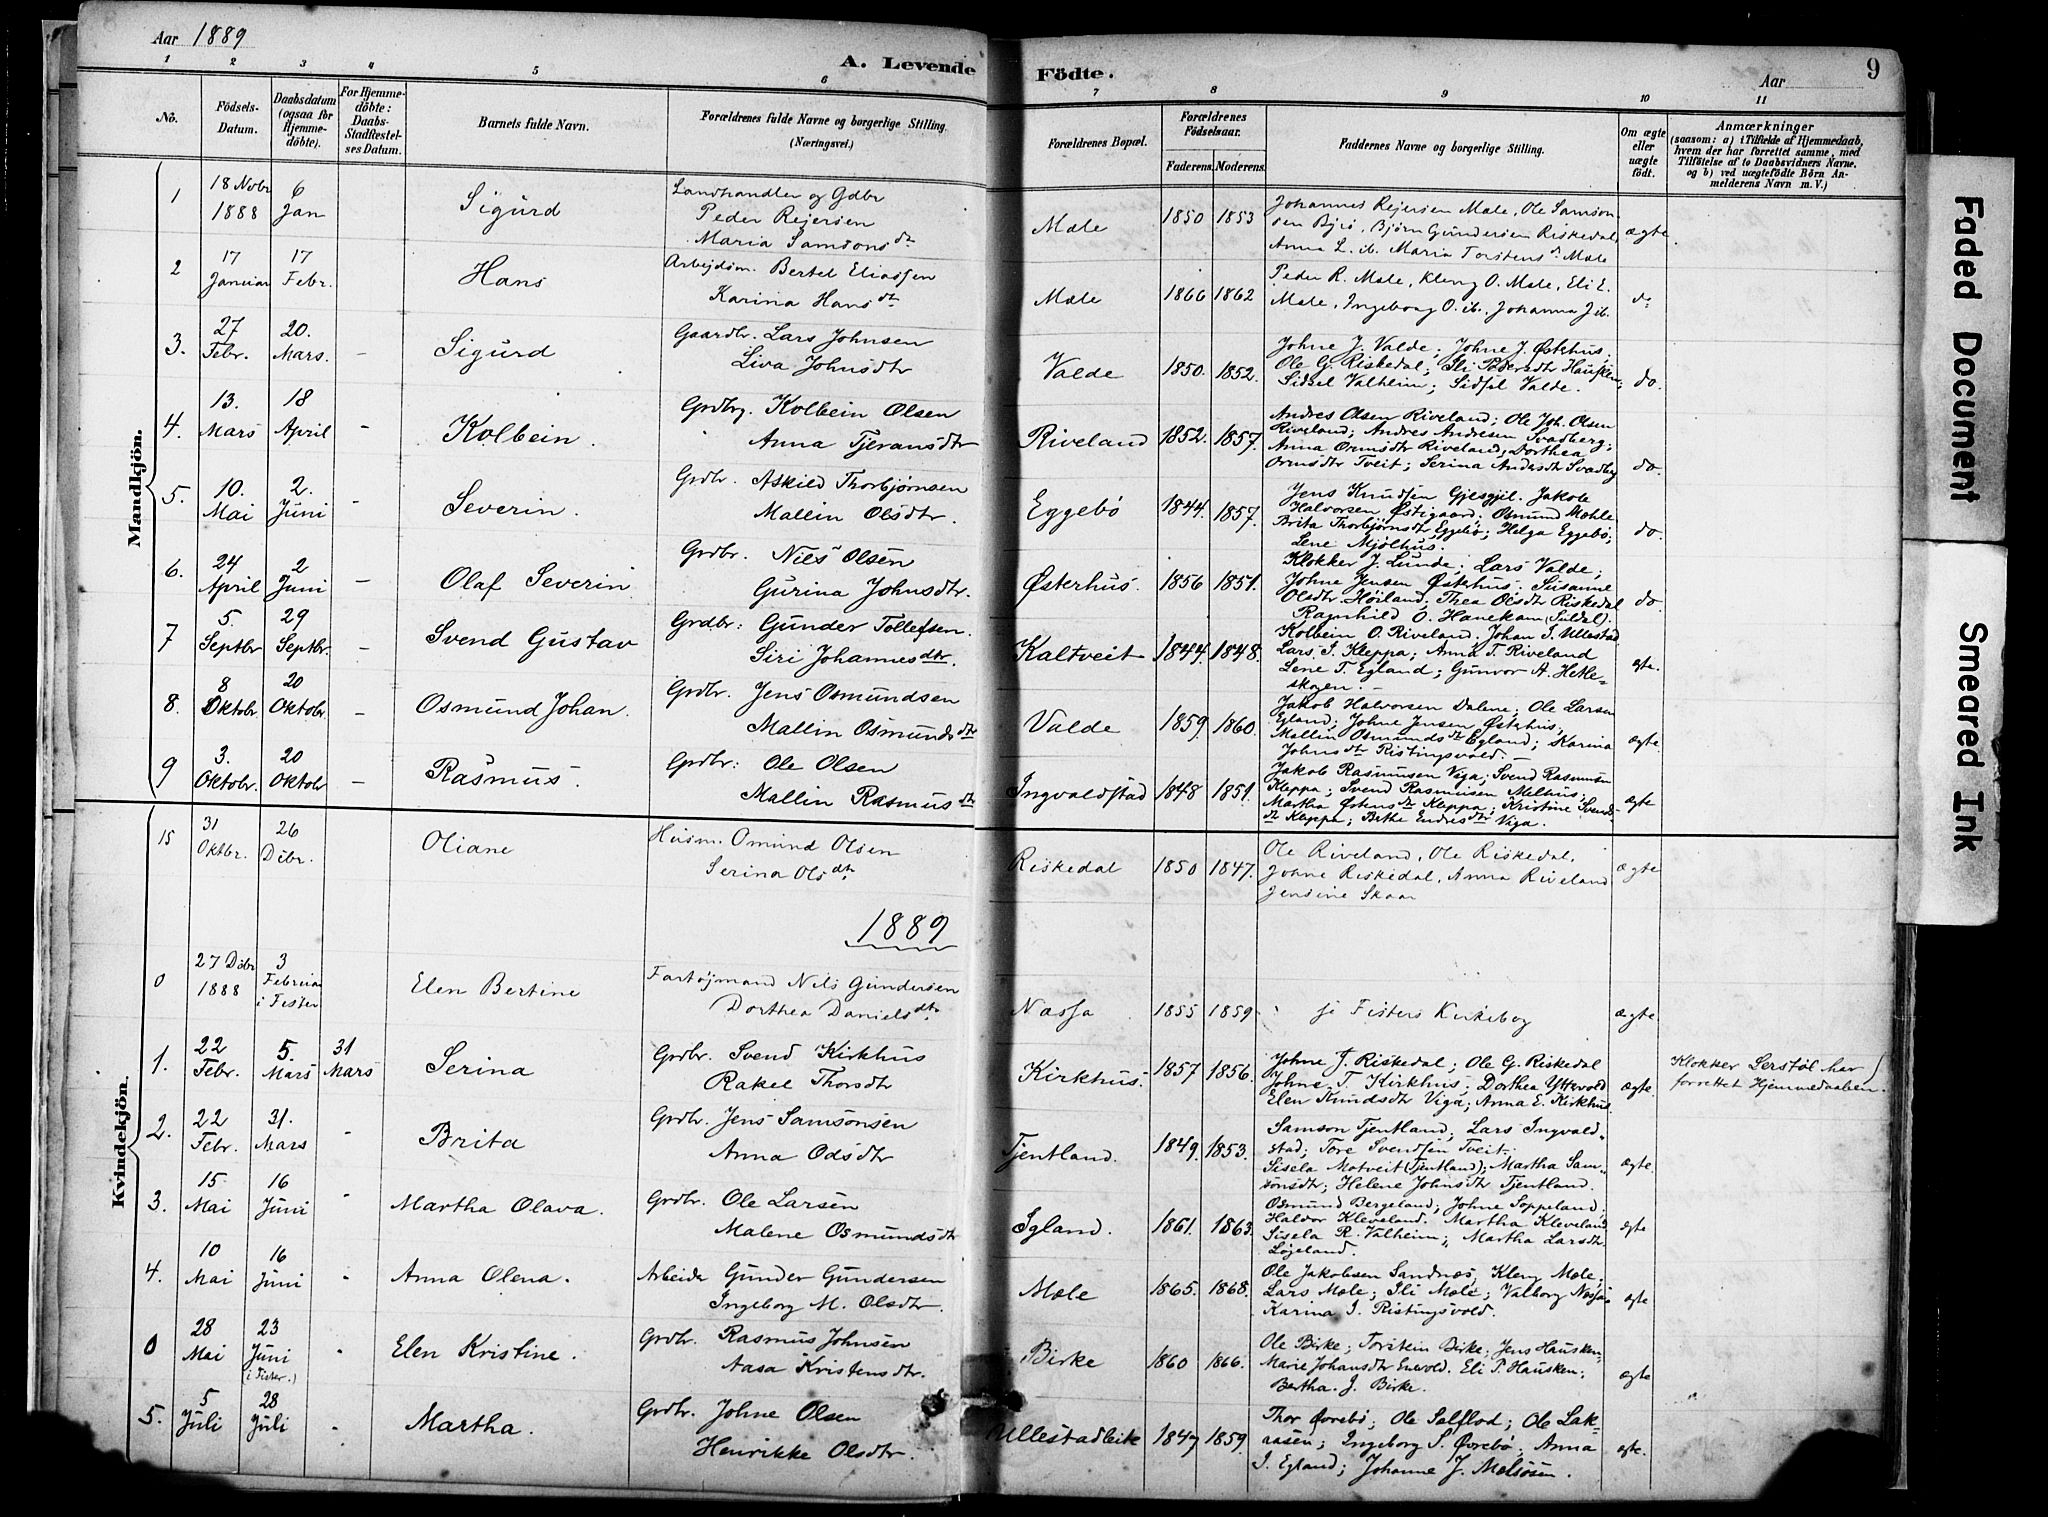 Aar 1889
A. Levende Födte.
Aar
9
1 2 3 4 5 6 7 8 9 10 11
No.
Födsels-Datum.
Daabsdatum (ogsaa for Hjemme-döbte).
For Hjemme-döbte: Daabs-Stadfæstel-ses Datum.
Barnets fulde Navn.
Forældrenes fulde Navne og borgerlige Stilling. (Næringsvei.)
Forældrenes Bopæl.
Forældrenes Födselsaar.
Faderens. Moderens.
Faddernes Navne og borgerlige Stilling.
Om ægte eller uægte födt.
Anmærkninger
(saasom: a) i Tilfælde af Hjemmedaab, hvem der har forrettet samme, med Tilföielse af to Daabsvidners Navne. og b) ved uægtefödte Börn An-melderens Navn m. V.)
Mandkjön.
1 18 Novbr 1888 6 Jan Sigurd Landhandler og Gdbr Peder Rejersen Maria Samsonsdtr Mæle 1850 1853 Johannes Rejersen Mæle, Ole Samson-sen Bjrö, Bjørn Gundersen Riskedal, Anna L. ib. Maria Torstensdtr Mæle ægte
2 17 Januar 17 Febr. Hans Arbejdsm. Bertel Eliassen Karina Hansdtr Mæle 1866 1862 Peder R. Mæle, Kleng O. Mæle, Eli E. Mæle, Ingeborg O. ib., Johanna J ib. do
3. 27 Febr. 20. Mars. - Sigurd Gaardbr. Lars Johnsen Liva Johnsdtr Valde 1850. 1852. Johne J. Valde; Johne J. Østehus; Ole G. Riskedal; Ili Pedersdtr Hausken; Sidsel Valheim; Sidsel Valde. do.
4. 13. Mars 18 April - Kolbein. Grdbr. Kolbein Olsen Anna Tjeransdtr Riveland 1852. 1857. Andres Olsen Riveland; Ole Joh. Olsen Riveland; Andres Andresen Svadberg; Anna Ormsdtr Riveland, Dorthea Ormsdtr Tveit; Serina Andersdtr Svadbg do.
5. 10. Mai 2. Juni - Severin. Grdbr. Askild Thorbjørnsen Mallin Olsdtr. Eggebø 1844. 1857. Jens Knudsen Gjesgjil. Jakob Halvorsen Østigaard. Osmund Mæhle Brita Thorbjørnsdtr Eggebø; Helga Eggebø; Lene Mjølhus. do.
6. 24 April 2 Juni - Olaf Severin Grdbr. Nils Olsen Gurina Johnsdtr. Østerhus. 1856 1851. Klokker J. Lunde; Lars Valde; Johne Jensen Østerhus; Susanne Olsdtr. Høiland; Thea Olsdtr Riskedal Ragnhild O. Hanekam (Suldal). do.
7 5. Septbr 29 Septbr. - Svend Gustav Grdbr: Gunder Tollefsen. Siri Johannesdtr. Kaltveit 1844. 1848. Kolbein O. Riveland. Johan I. Ullestad Lars I. Kleppa; Anna T. Riveland Lene T. Egland; Gunvor A. Hetle-skogen. - ægte.
8. 8 Oktobr. 20 Oktobr - Osmund Johan. Grdbr. Jens Osmundsen Mallin Osmundsdtr Valde 1859 1860. Jakob Halvorsen Dalene; Ole Larsen Egland; Johne Jensen Østehus; Mallin Osmundsdtr Egland; Karina Johnsdtr Ristingsvold. - ægte
9 3. Oktobr. 20 Oktobr - Rasmus. Grdbr: Ole Olsen Mallin Rasmusdtr Ingvaldstad 1848 1851. Jakob Rasmusen Viga; Svend Rasmusen Kleppa; Svend Rasmusen Melhus; Martha Østensdtr Kleppa; Kristine Svends-dtr Kleppa; Brthe Endresdtr Viga. ægte
15 31 Oktbr. 26 Dcbr. Oliane Husm. Omund Olsen Serina Olsdtr Riskedal 1850 1847. Ole Riveland, Ole Riskedal, Johne Riskedal, Anna Riveland Jensine Skaar ægte
1889
Kvindekjön.
0 27 Dcbr 1888 3 Februar i Fister Elen Bertine Fartøjmand Nils Gundersen Dorthea Danielsdtr Næssa 1855 1859 se Fisters Kirkebog ægte.
1. 22 Febr. 5. Mars 31 Mars Serina Grdbr. Svend Kirkhus Rakel Thorsdtr Kirkhus. 1857 1856. Johne J. Riskedal; Ole G. Riskedal Johne T. Kirkhus; Dorthea Yttevold Elen Knudsdtr Viga; Anna E. Kirkhus. ægte. Klokker Serstøl har forrettet Hjemmedaaben.
2. 22 Febr. 31. Mars - Brita Grdbr. Jens Samsonsen Anna Odsdtr Tjentland. 1849. 1853. Samson Tjentland; Lars Ingvald-stad; Tore Svendsen Tveit. Sisela Motveit (Tjentland); Martha Sam-sonsdtr; Helene Johnsdtr Tjentland. ægte.
3. 15. Mai 16 Juni - Martha Olava. Grdbr. Ole Larsen Malene Osmundsdtr Igland. 1861. 1863. Osmund Bergeland; Johne Soppeland; Haldor Kleveland. Martha Kleveland Sisela R. Valheim; Martha Larsdtr. Løgeland. ægte
4. 10 Mai 16 Juni - Anna Olena. Arbeider Gunder Gundersen Ingeborg M. Olsdtr. Mæle 1865. 1868. Ole Jakobsen Sandnæs; Kleng Mæle; Lars Mæle; Ili Mæle; Valborg Næsja Karina I. Ristingsvold. ægte
0 28 Mai 23 Juni (i Fister.) - Elen Kristine. Grdbr. Rasmus Johnsen Aasa Kristensdtr. Birke 1860 1866. Ole Birke; Torstein Birke; Jens Hausken; Marie Johansdtr Enevold. Eli P. Hausken; Bertha. J. Birke. ægte
5. 5 Juli 28 Juli - Martha. Grdbr. Johne Olsen Henrikke Olsdtr. Ullestadleite 1847 1859. Thor Øvrebø; Ole Selflod; Ole Lak-aasen; Ingeborg S. Øvrebø; Anna I. Egland; Johanne J. Melsosen. ægte.
Faded Document
Smeared Ink